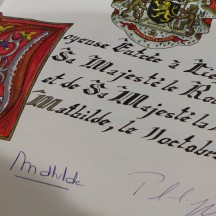 oyeuse Entrée
Sa Majesté le Ro
et de Sa Majesté la
Mathilde, le 9 octob
Mathilde